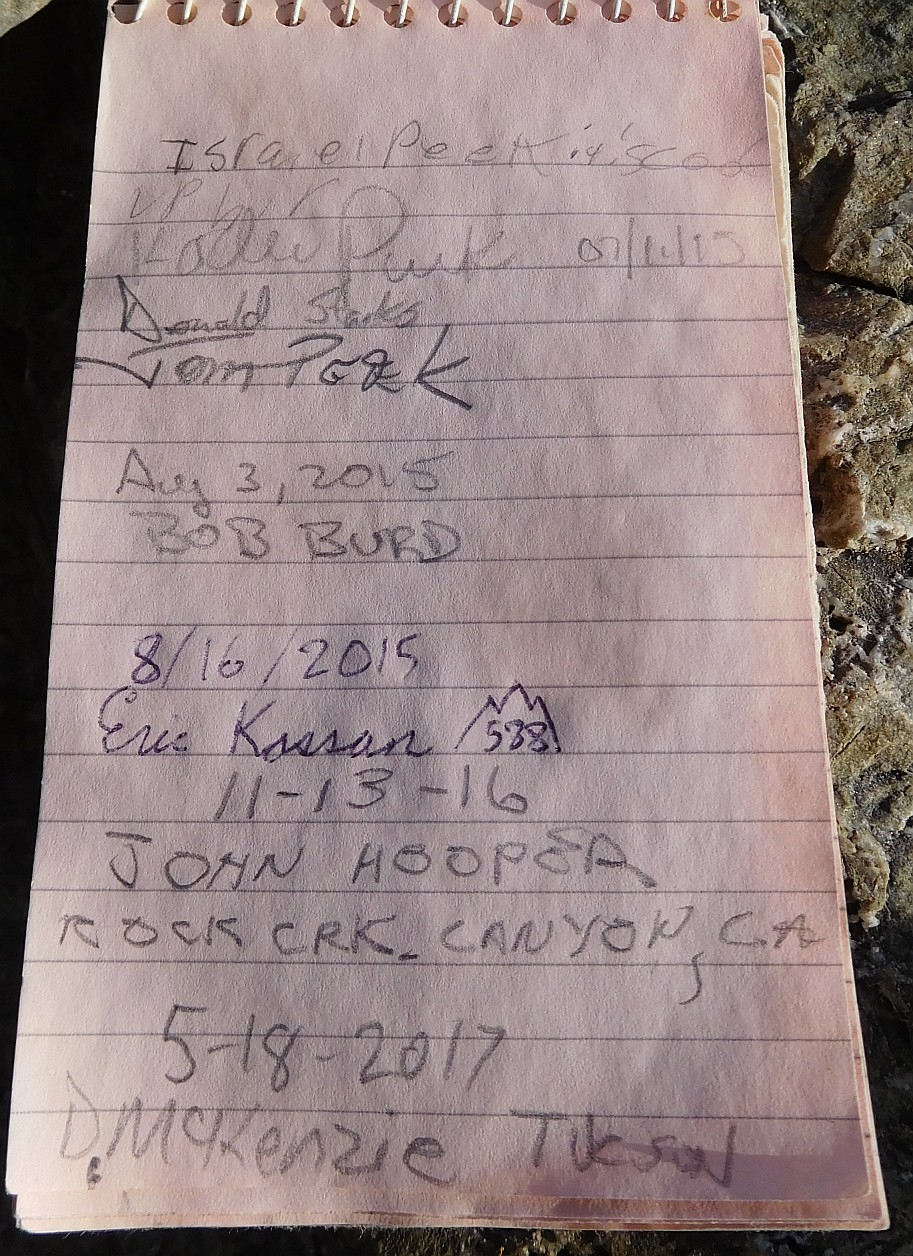 Israel Peek
up
07/11/15
Donald Starks
Tom Peek
Aug 3, 2015
BOB BURD
8/16/2015
Eric Kassan 588
11-13-16
JOHN HOOPER
ROCK CRK. CANYON, CA
5-18-2017
D. McKenzie